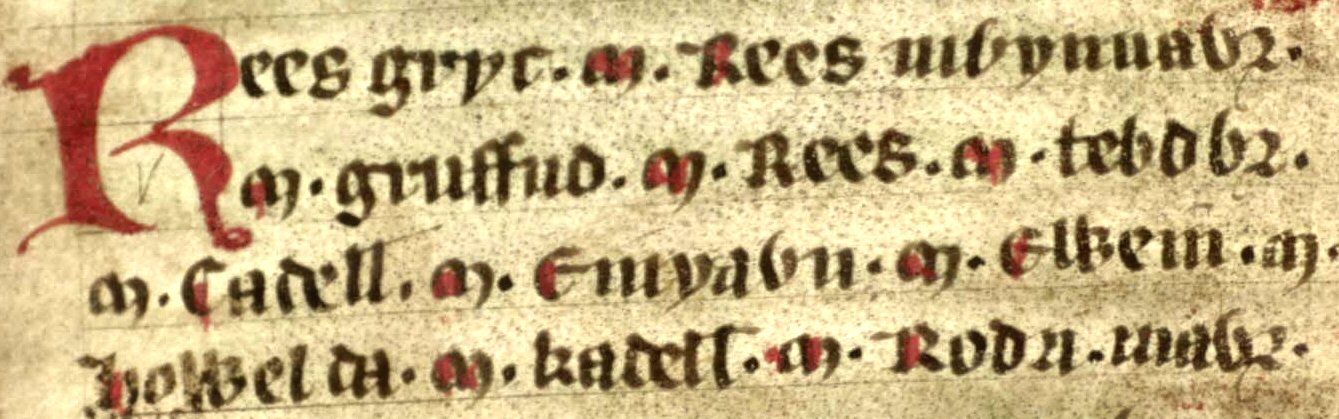 Rees gryc. m. Rees mbynuabr.
m. gruffud. m. Rees. m. tebdbr.
m. Cadell. m. Eınyabn. m. Elbein. m.
howel da. m. kadell. m. Rodri. mabr.